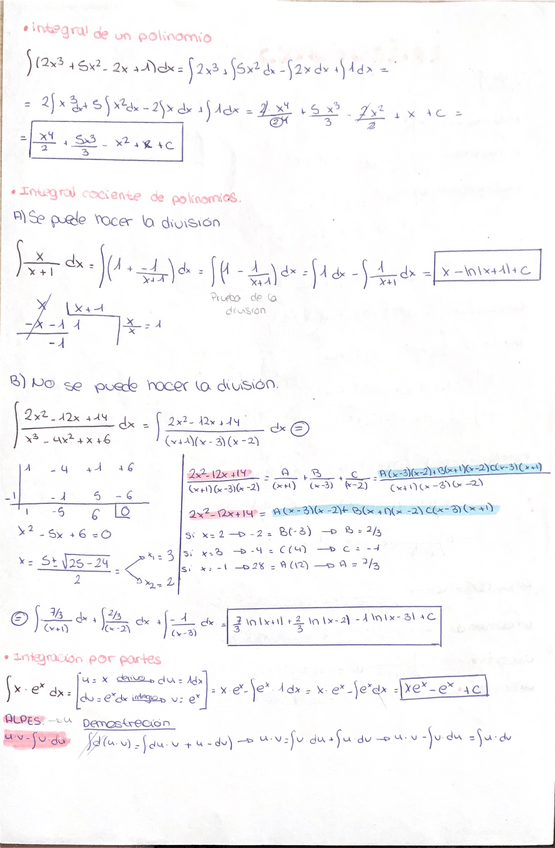 • integral de un polinomio
∫(2x³ + 5x² - 2x + 1)dx = ∫2x³ + ∫5x² dx - ∫2x dx + ∫1dx =
= 2∫x³dx + 5∫x²dx - 2∫x dx + ∫1dx = 2 x⁴/4 + 5 x³/3 - 2x²/2 + x + C =
= x⁴/2 + 5x³/3 - x² + x + C
• Integral cociente de polinomios.
A) Se puede hacer la división
∫ x/(x+1) dx = ∫(1 + -1/(x+1)) dx = ∫(1 - 1/(x+1)) dx = ∫1dx - ∫1/(x+1) dx = x - ln|x+1| + C
Prueba de la
división
x |x+1
-x-1 1 x/x = 1
-1
B) No se puede hacer la división.
∫ (2x² - 12x + 14)/(x³ - 4x² + x + 6) dx = ∫ (2x² - 12x + 14)/((x+1)(x-3)(x-2)) dx =
1 -4 +1 +6
-1 -1 5 -6
1 -5 6 0
x² - 5x + 6 = 0
x = (5 ± √(25-24))/2 = x₁ = 3
x₂ = 2
(2x² - 12x + 14)/((x+1)(x-3)(x-2)) = A/(x+1) + B/(x-3) + C/(x-2) = (A(x-3)(x-2) + B(x+1)(x-2) C(x-3)(x+1))/((x+1)(x-3)(x-2))
2x² - 12x + 14 = A(x-3)(x-2) + B(x+1)(x-2) C(x-3)(x+1)
Si x = 2 → -2 = B(-3) → B = 2/3
Si x = 3 → -4 = C(4) → C = -1
Si x = -1 → 28 = A(12) → A = 7/3
= ∫ (7/3)/(x+1) dx + ∫ (2/3)/(x-2) dx + ∫ -1/(x-3) dx = 7/3 ln|x+1| + 2/3 ln|x-2| - 1 ln|x-3| + C
• Integración por partes
∫x·eˣ dx = [u = x deriva→ du = 1dx
dv = eˣ dx integro→ v = eˣ] = x eˣ - ∫eˣ · 1dx = x·eˣ - ∫eˣdx = xeˣ - eˣ + C
ALPES → u Demostración
u·v - ∫v·du ∫d(u·v) = ∫du·v + u·dv) → u·v = ∫v·du + ∫u dv → u·v - ∫v·du = ∫u·dv